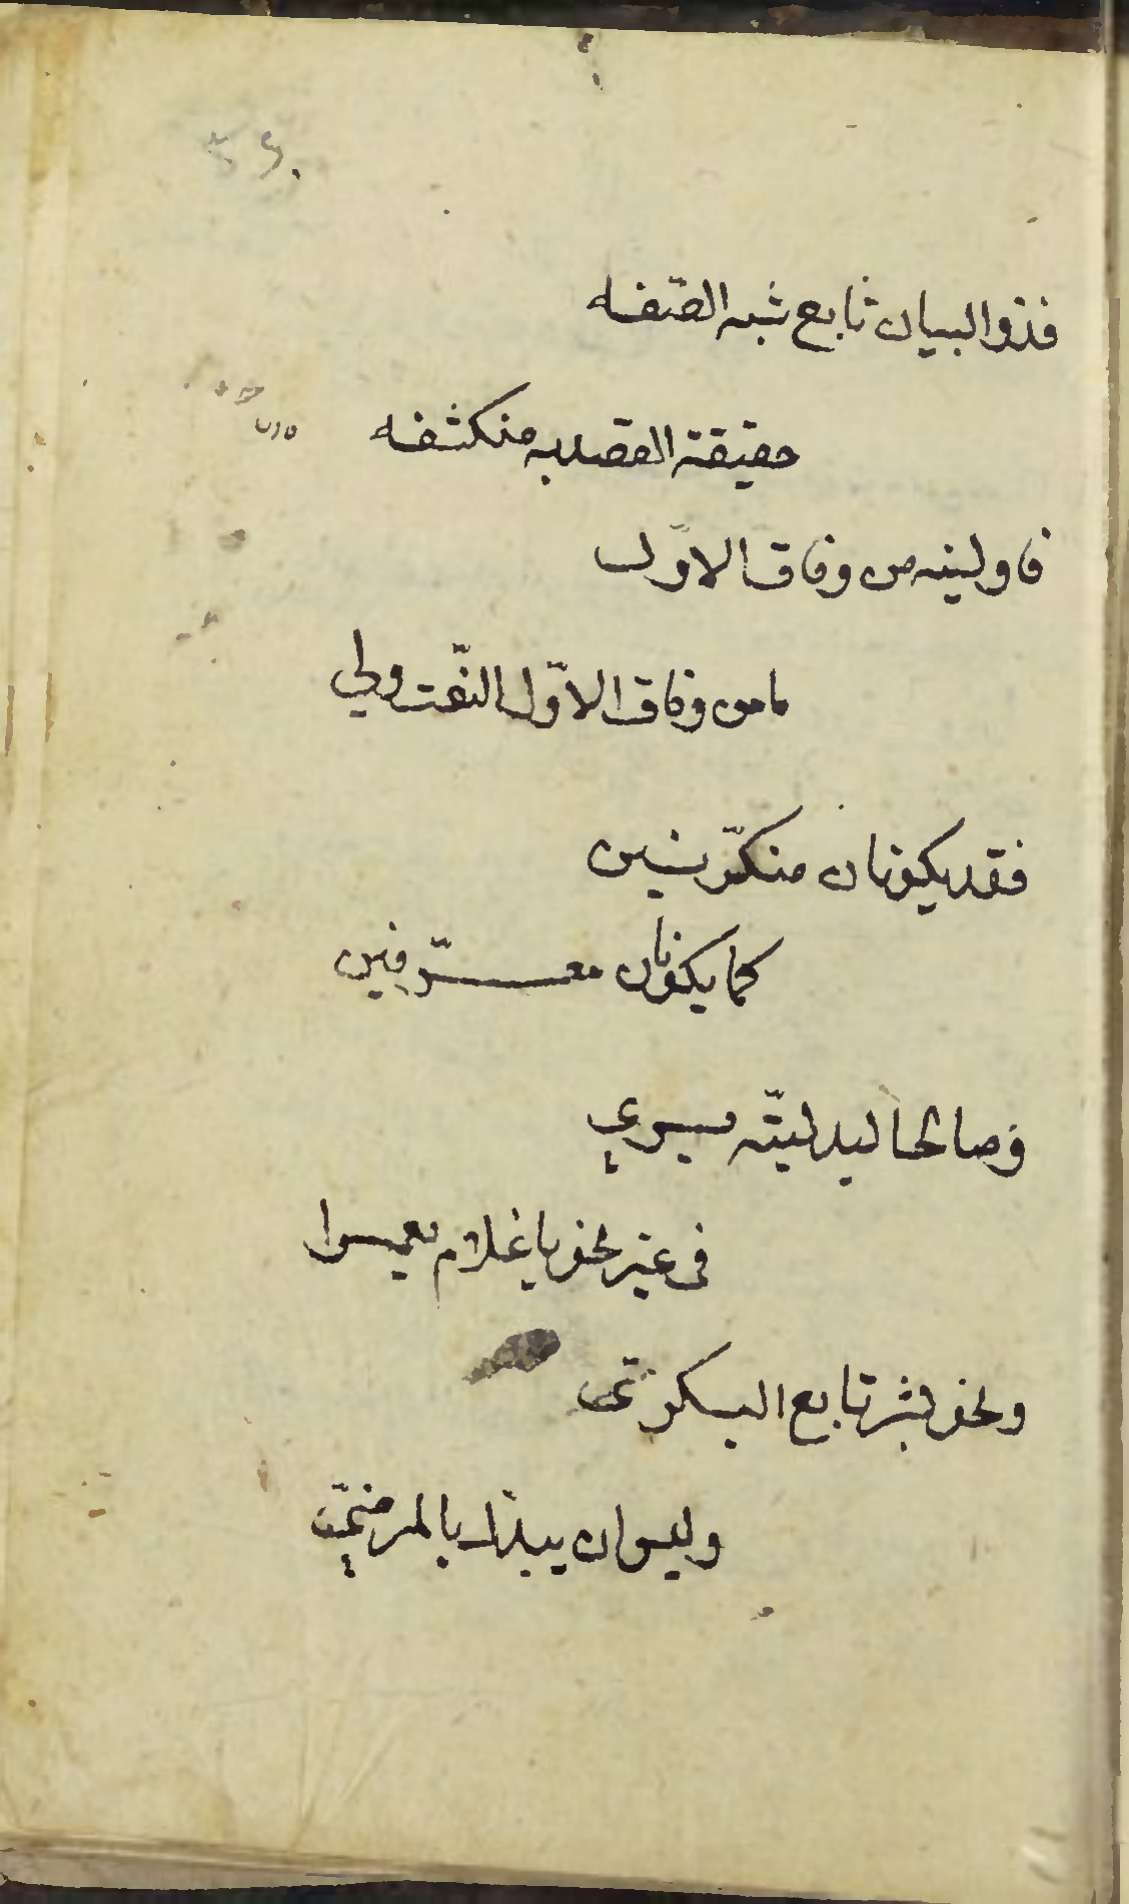 فذو البيان تابع شبه الصّفه
حقيقة القصد به منكشفه
فاولينه من وفاق الاوّل
ما من وفاق الاوّل النّعت ولي
فقد يكونان منكّرين
كما يكونان معرّفين
وصالحا لبدليّة يرى
في غير نحو يا غلام يعمرا
ونحو بشر تابع البكريّ
وليس ان يبدل بالمرضيّ